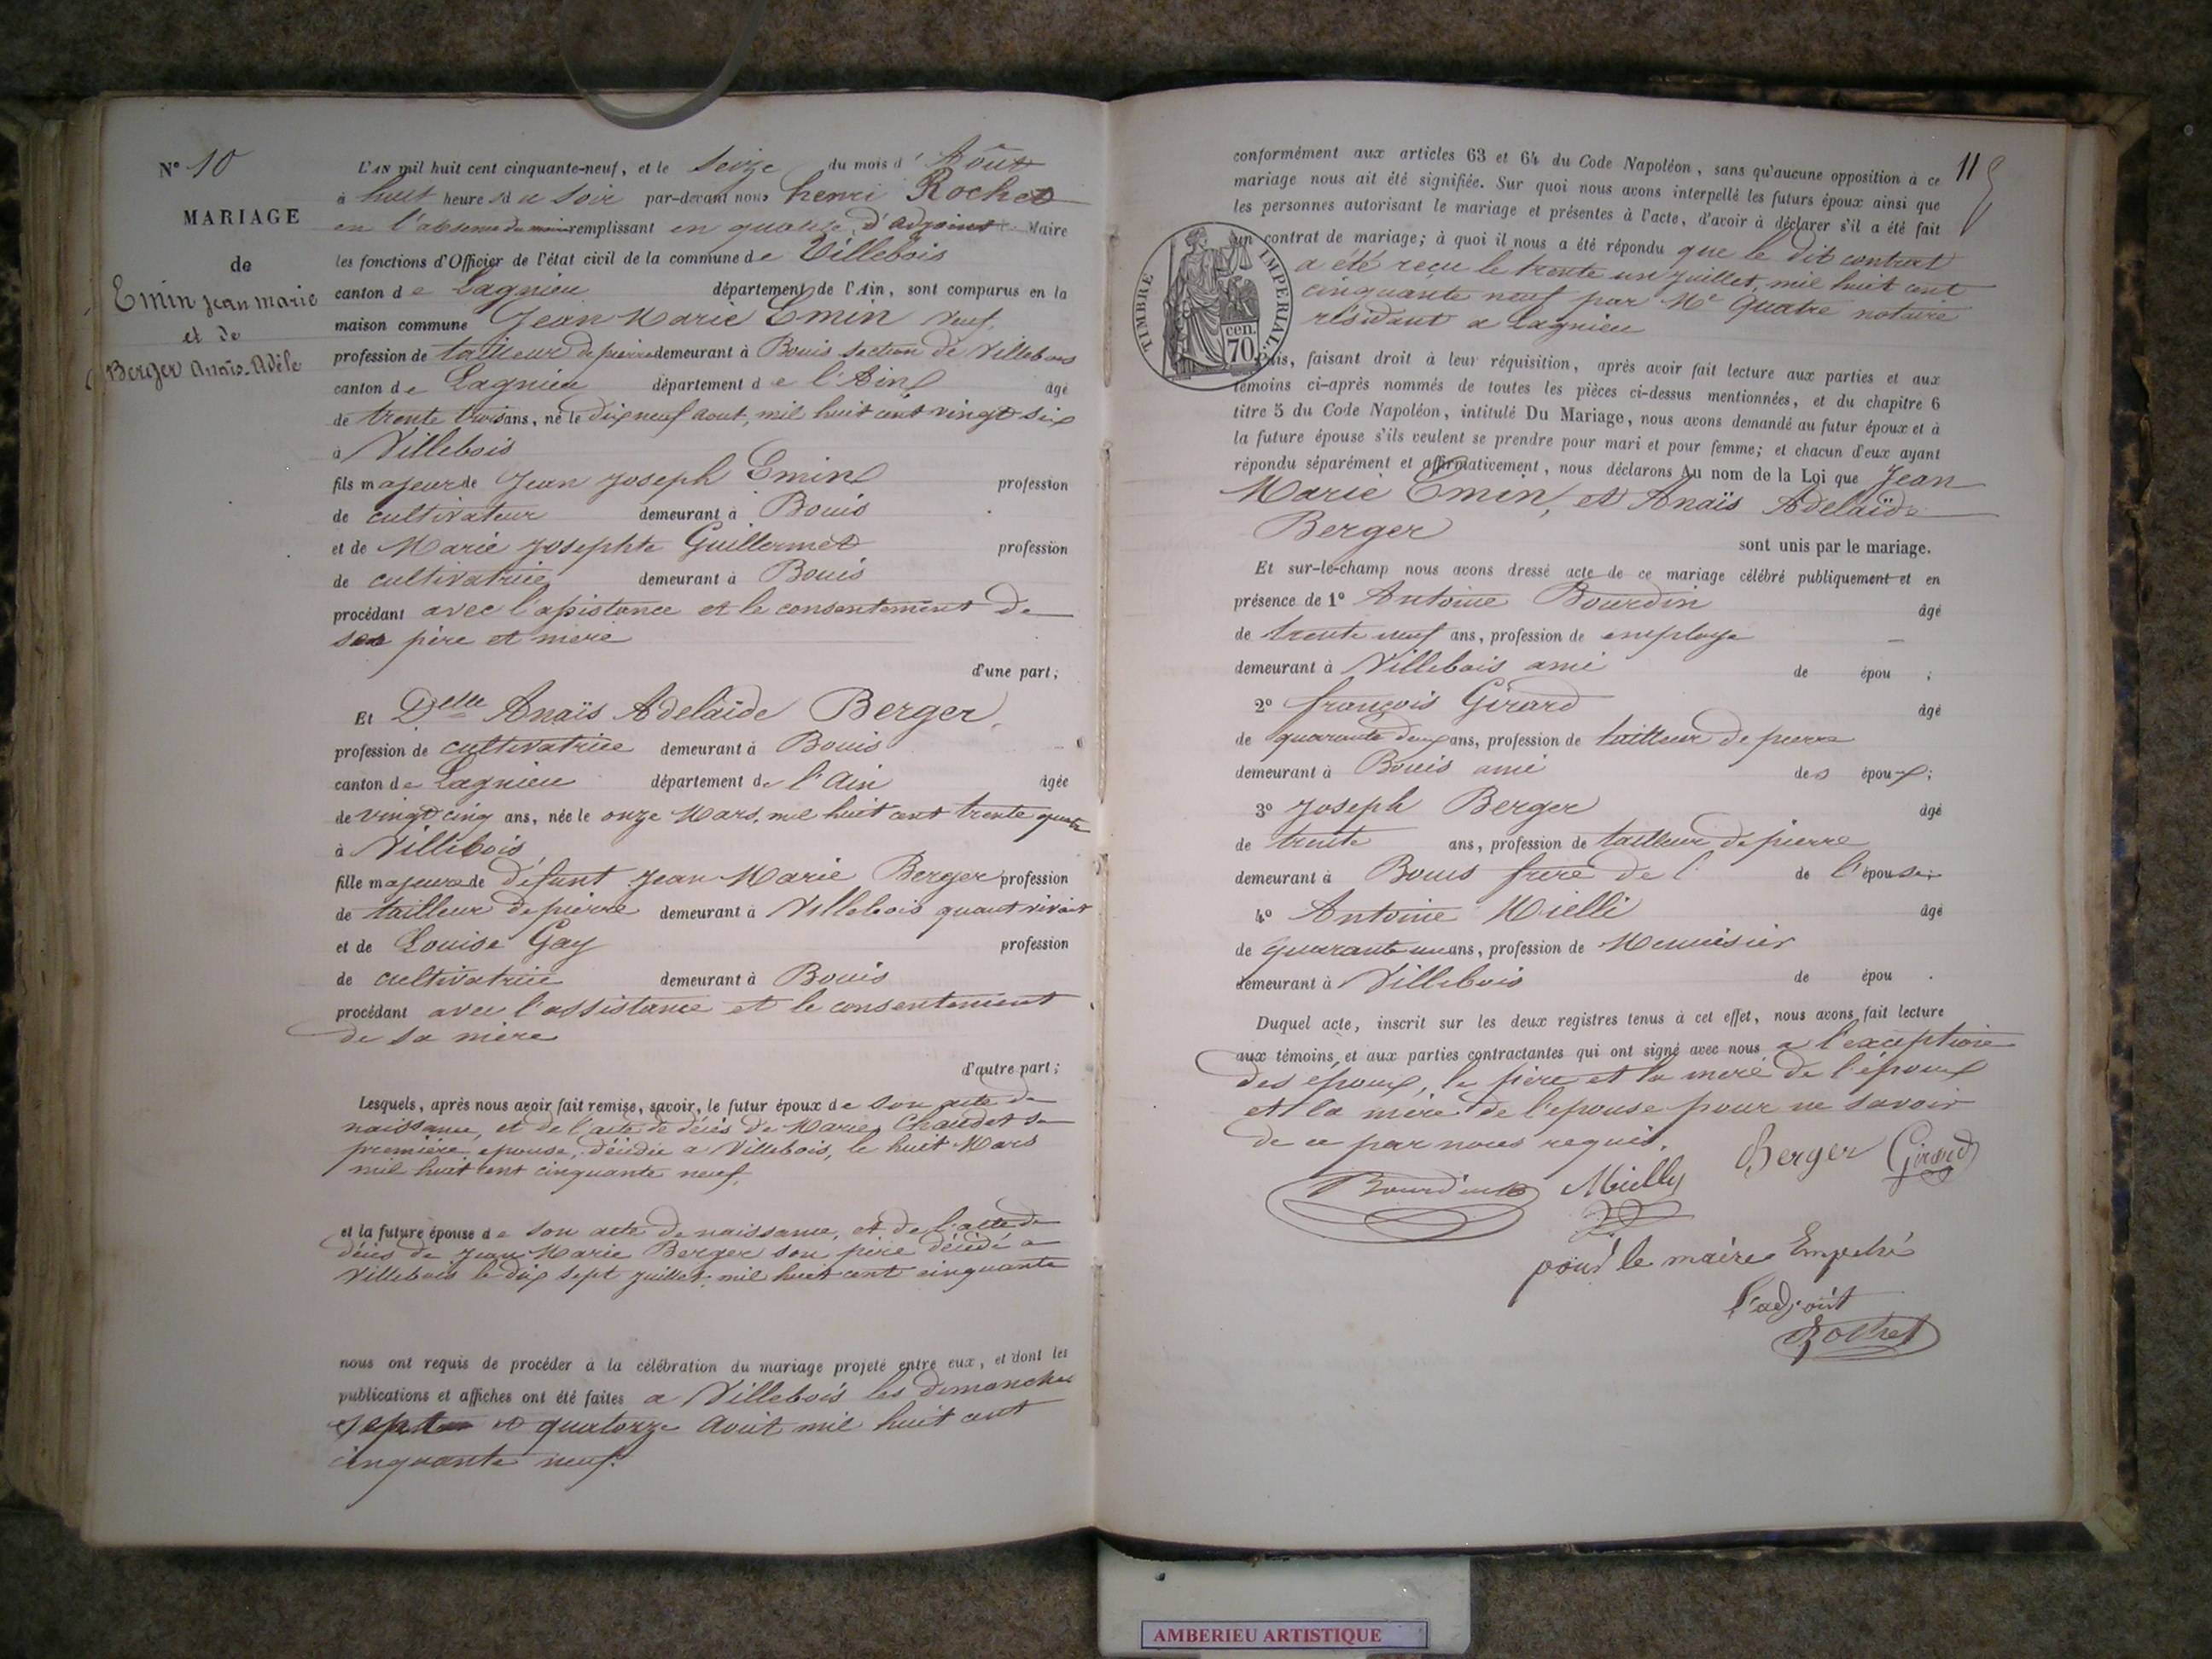 N° 10
MARIAGE
de
Emin Jean Marie
et de
Berger Anaïs-Adèle
L'AN mil huit cent cinquante-neuf, et le Seize du mois d'Août
à huit heures du Soir par-devant nous henri Rochet
en l'absence du maire remplissant en qualité d'adjoint Maire
les fonctions d'Officier de l'état civil de la commune de Villebois
canton de Lagnieu département de l'Ain, sont comparus en la
maison commune Jean Marie Emin Veuf,
profession de tailleur de pierre demeurant à Bouis section de Villebois
canton de Lagnieu département de l'Ain âgé
de trente trois ans, né le dix neuf aout, mil huit cent vingt six
à Villebois
fils majeur de Jean Joseph Emin profession
de cultivateur demeurant à Bouis
et de Marie Josephte Guillermet profession
de cultivatrice demeurant à Bouis
procédant avec l'assistance et le consentement de
ses père et mère
d'une part;
Et Delle Anaïs Adelaïde Berger,
profession de cultivatrice demeurant à Bouis
canton de Lagnieu département de l'Ain âgée
de vingt cinq ans, née le onze Mars, mil huit cent trente quatre
à Villebois
fille majeure de défunt Jean Marie Berger profession
de tailleur de pierre demeurant à Villebois quant vivait
et de Louise Gay profession
de cultivatrice demeurant à Bouis
procédant avec l'assistance et le consentement
de sa mère
d'autre part;
Lesquels, après nous avoir fait remise, savoir, le futur époux de son acte de
naissance, et de l'acte de décès de Marie Chaudet sa
première epouse, décédée a Villebois, le huit Mars
mil huit cent cinquante neuf,
et la future épouse de son acte de naissance, et de l'acte de
décès de Jean Marie Berger son père décédé a
Villebois le dix sept juillet mil huit cent cinquante
nous ont requis de procéder à la célébration du mariage projeté entre eux, et dont les
publications et affiches ont été faites a Villebois les dimanches
sept et quatorze Août mil huit cent
cinquante neuf.
115
conformément aux articles 63 et 64 du Code Napoléon, sans qu'aucune opposition à ce
mariage nous ait été signifiée. Sur quoi nous avons interpellé les futurs époux ainsi que
les personnes autorisant le mariage et présentes à l'acte, d'avoir à déclarer s'il a été fait
un contrat de mariage; à quoi il nous a été répondu que le dit contrat
a été reçu le trente un juillet, mil huit cent
cinquante neuf par Me Quatre notaire
résidant a Lagnieu
TIMBRE IMPERIAL.
cen.
70
Puis, faisant droit à leur réquisition, après avoir fait lecture aux parties et aux
témoins ci-après nommés de toutes les pièces ci-dessus mentionnées, et du chapitre 6
titre 5 du Code Napoléon, intitulé Du Mariage, nous avons demandé au futur époux et à
la future épouse s'ils veulent se prendre pour mari et pour femme; et chacun d'eux ayant
répondu séparément et affirmativement, nous déclarons Au nom de la Loi que Jean
Marie Emin, et Anaïs Adelaïde
Berger sont unis par le mariage.
Et sur-le-champ nous avons dressé acte de ce mariage célébré publiquement et en
présence de 1° Antoine Bourdin âgé
de trente neuf ans, profession de employe
demeurant à Villebois ami de épou ;
2° françois Girard âgé
de quarante deux ans, profession de tailleur de pierre
demeurant à Bouis ami des époux;
3° Joseph Berger âgé
de trente ans, profession de tailleur de pierre
demeurant à Bouis frère de l' de l'épouse;
4° Antoine Mielli âgé
de quarante un ans, profession de Menuisier
demeurant à Villebois de épou .
Duquel acte, inscrit sur les deux registres tenus à cet effet, nous avons fait lecture
aux témoins et aux parties contractantes qui ont signé avec nous a l'exception
des époux, le père et la mere de l'époux
et la mère de l'epouse pour ne savoir
de ce par nous requis.
Bourdin Mielly Berger Girard
pour le maire Empeché
l'adjoint
Rochet
AMBERIEU ARTISTIQUE